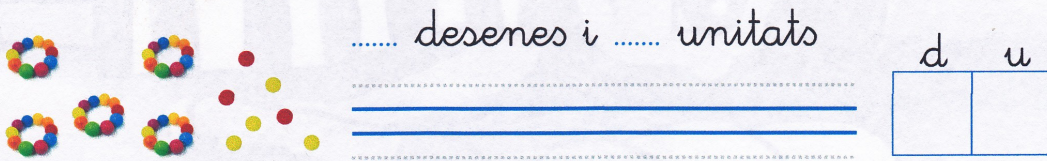 ....... desenes i ...... unitats
d u